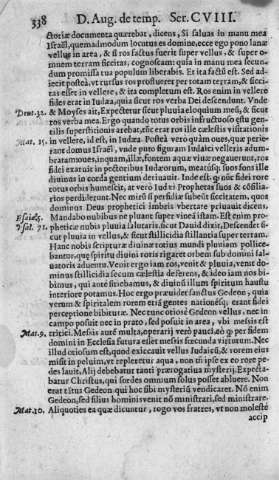 338 D. Aug. de temp. Ser. CVIII.
ctoriæ documenta quærebat, dicens, Si saluas in manu mea
Israël, quemadmodum locutus es domine, ecce ego pono lanæ
vellus in area, & si ros factus fuerit super vellus, & super o-
mnem terram siccitas, cognoscam: quia in manu mea secun-
dum promissa tua populum liberabis. Et ita factũ est. Sed ad-
iecit postea, vt rursus ros proflueret per totam terram, & sicci-
tas esset in vellere, & ita completum est. Ros enim in vellere
fides erat in Iudæa, quia sicut ros verba Dei descendunt. Vnde
Deut. 32. & Moyses ait, Expectetur sicut pluuia eloquium meũ, & sicut
ros verba mea. Ergo quando totus orbis infructuoso æstu gen-
tilis superstitionis arebat, tũc erat ros ille cælestis visitationis
Mat. 15. in vellere, id est, in Iudæa. Postea verò quàm oues, quæ perie-
rant domus Israël, vnde puto figuram Iudaici velleris adum-
bratam
oues, inquam, illæ, fontem aquæ viuæ negauerunt, ros
fidei exaruit in pectoribus Iudæorum, meatusq́; suos fons ille
diuinus in corda gentium deriuauit. Inde est, q̃ nũc fidei rore
totus orbis humescit, at verò Iudæi Prophetas suos & cõsilia-
rios perdiderunt. Nec mirũ si perfidiæ subeũt siccitatem, quos
dominus Deus vbertate prophetici imbris priuauit dicens,
Esaiæ 5. Mandabo nubibus ne pluant super vineã istam. Est enim pro-
Psal. 71. pheticæ nubis pluuia salutaris, sicut Dauid dixit, Descendet si-
cut pluuia in vellus, & sicut stillicidia stillantia super terram.
Hanc nobis scripturæ diuinæ totius mundi pluuiam pollice-
bantur, quæ spiritus diuini roris rigaret orbem sub domini sal-
uatoris aduentu. Venit ergo iam ros, venit & pluuia, venit do-
minus stillicidia secum cælestia deferens, & ideo iam nos bi-
bimus, qui ante sitiebamus, & diuinũ illum spiritum haustu
interiore potamus. Hoc ergo præuidit sanctus Gedeon, quia
verum & spiritalem rorem etiã gentes nationésq́; erant fidei
perceptione bibituræ. Nec tunc otiosè Gedeon vellus, nec in
campo posuit nec in prato, sed posuit in area, vbi messis est
Mat. 9. tritici. Messis autẽ multa, operarij verò pauci: eò q̃ per fidem
domini in Ecclesia futura esset messis fœcunda virtutum. Nec
illud otiosum est, quod exiccauit vellus Iudaicũ, & rorem eius
misit in peluim, vt repleretur aqua, non tñ ipse ex eo rore pe-
des lauit. Alij debebatur tanti prærogatiua mysterij. Expecta-
batur Christus, qui sordes omnium solus posset abluere. Non
erat tãtus Gedeon qui hoc sibi mysteriũ vendicaret. Nõ enim
Gedeon, sed filius hominis venit nõ ministrari, sed ministrare.
Mat. 20. Aliquoties ea quæ dicuntur, rogo vos fratres, vt non molestè
accip